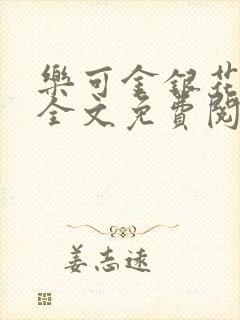 樂可金銀花
全文免費閱
姜志遠